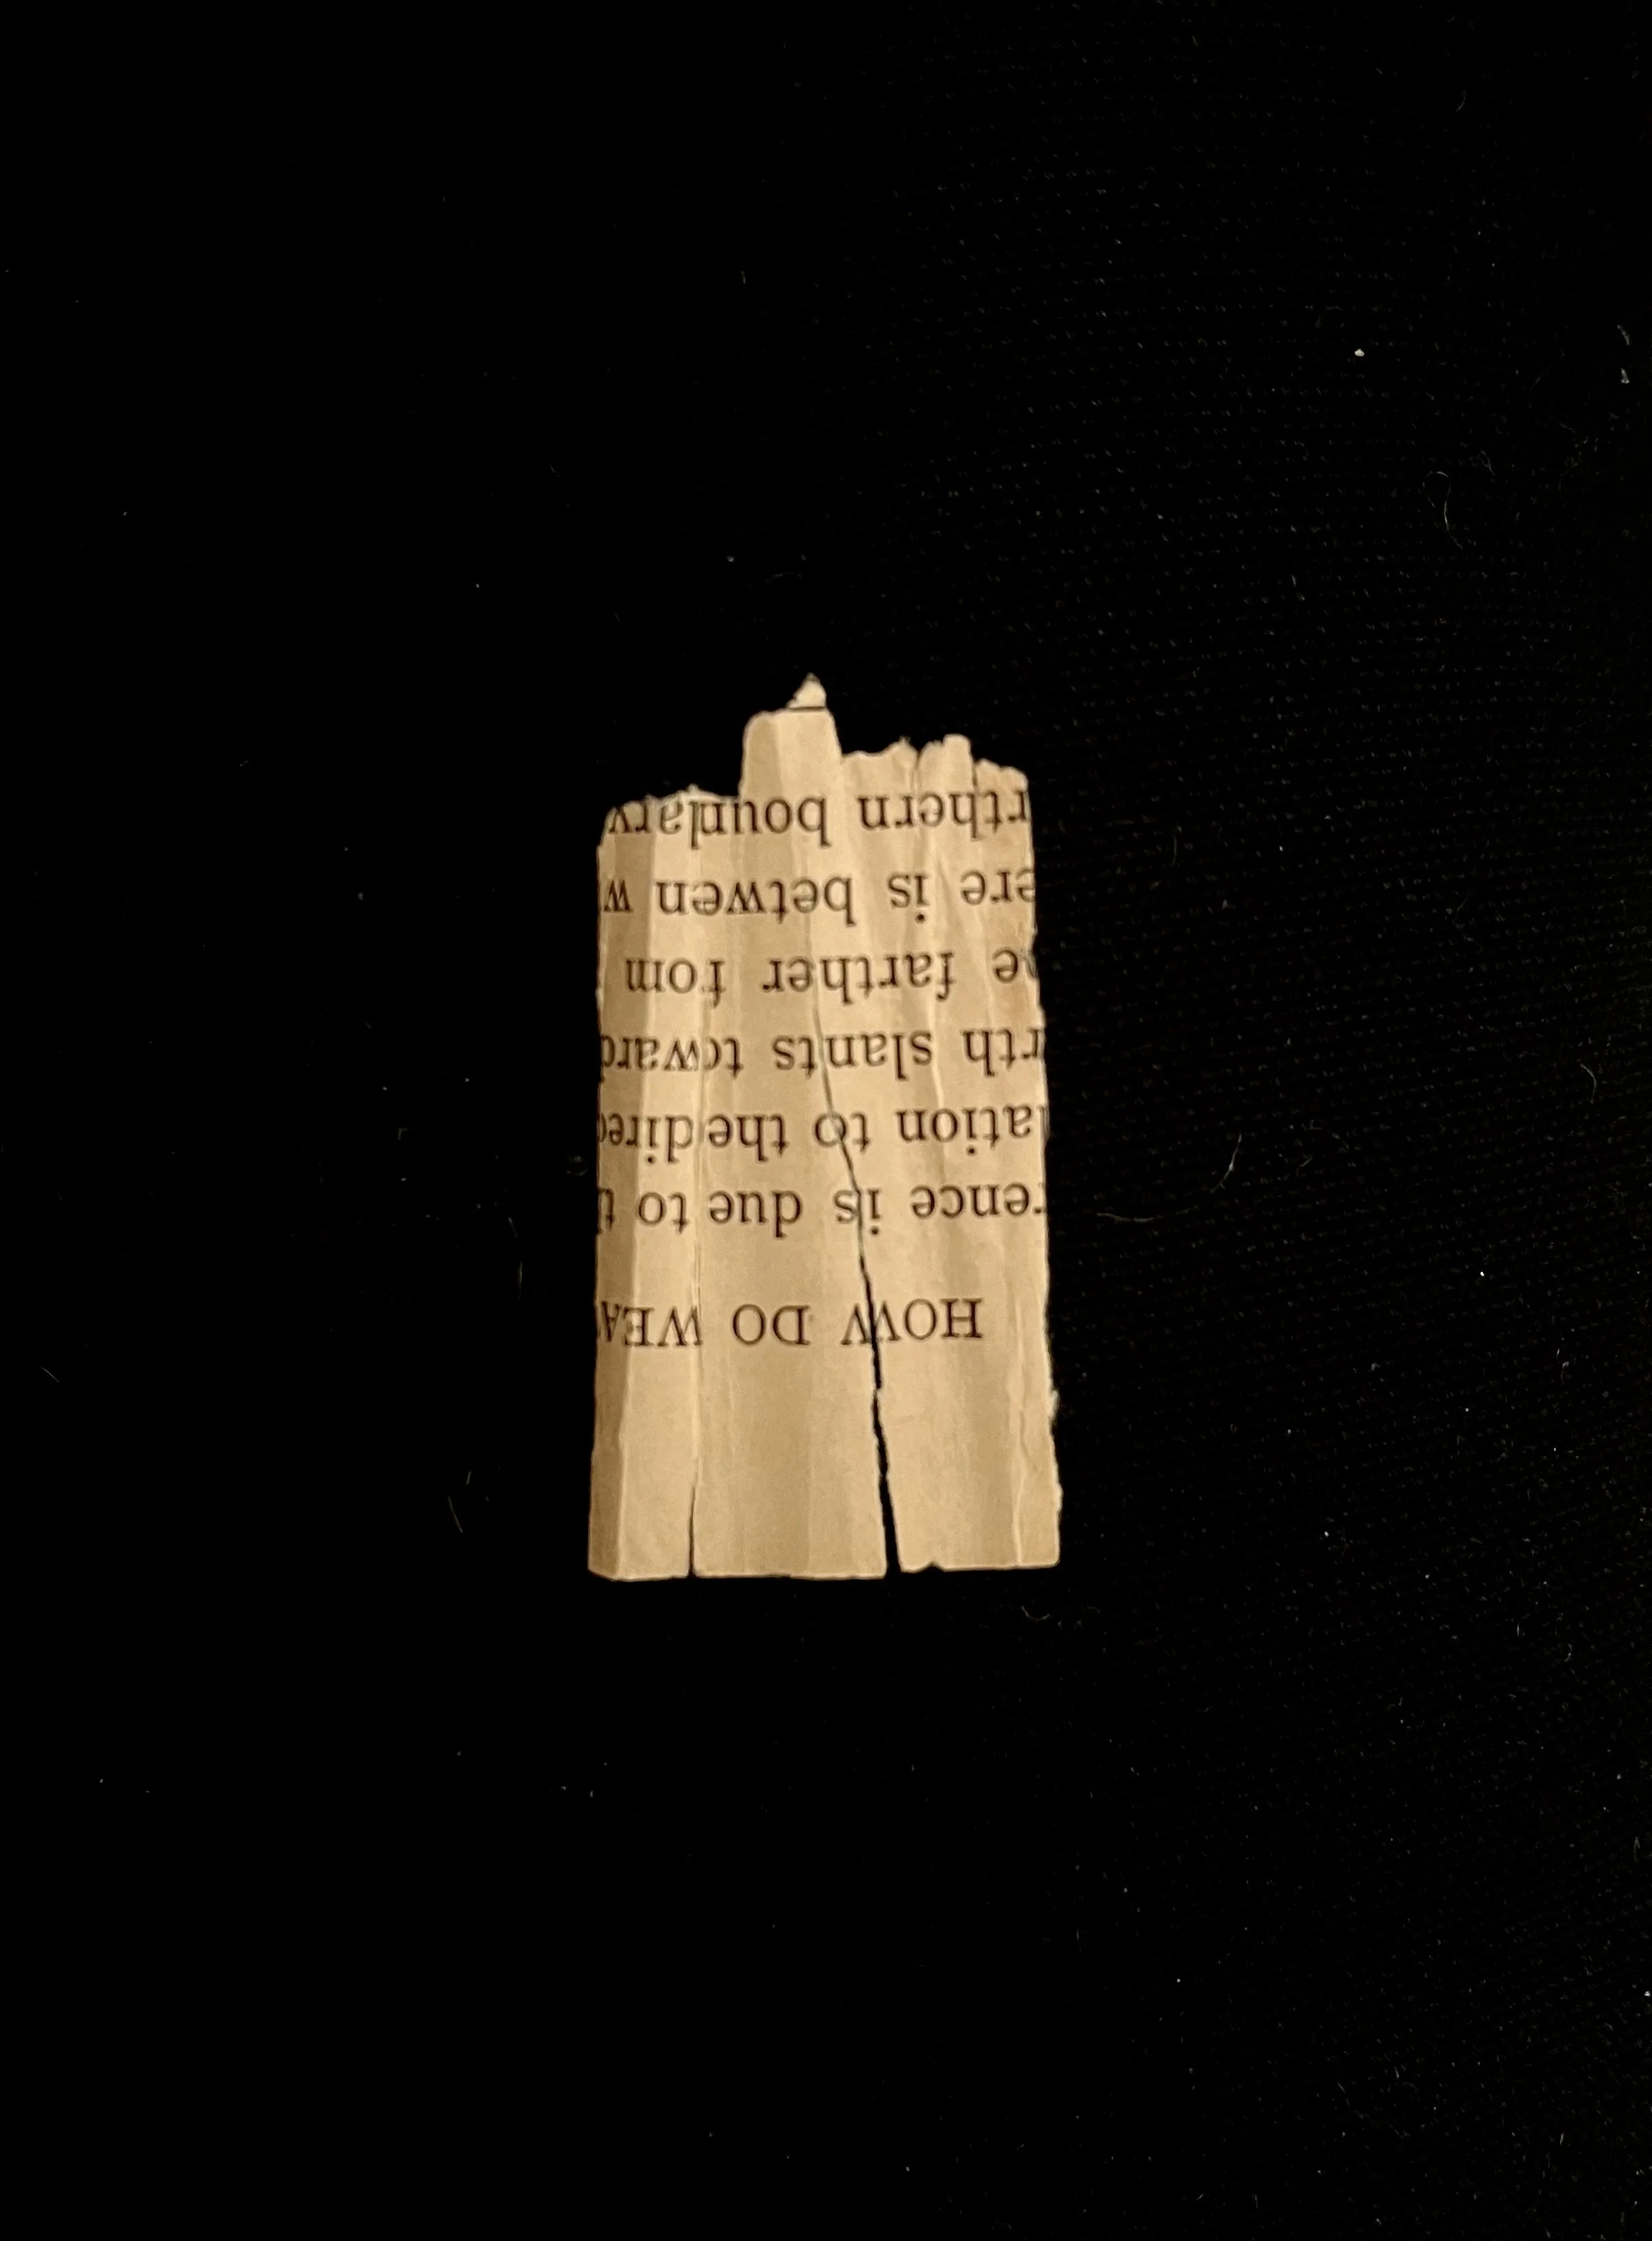 HOW DO WEA
rence is due to t
lation to the direc
rth slants toward
e farther from
ere is between w
rthern boundary